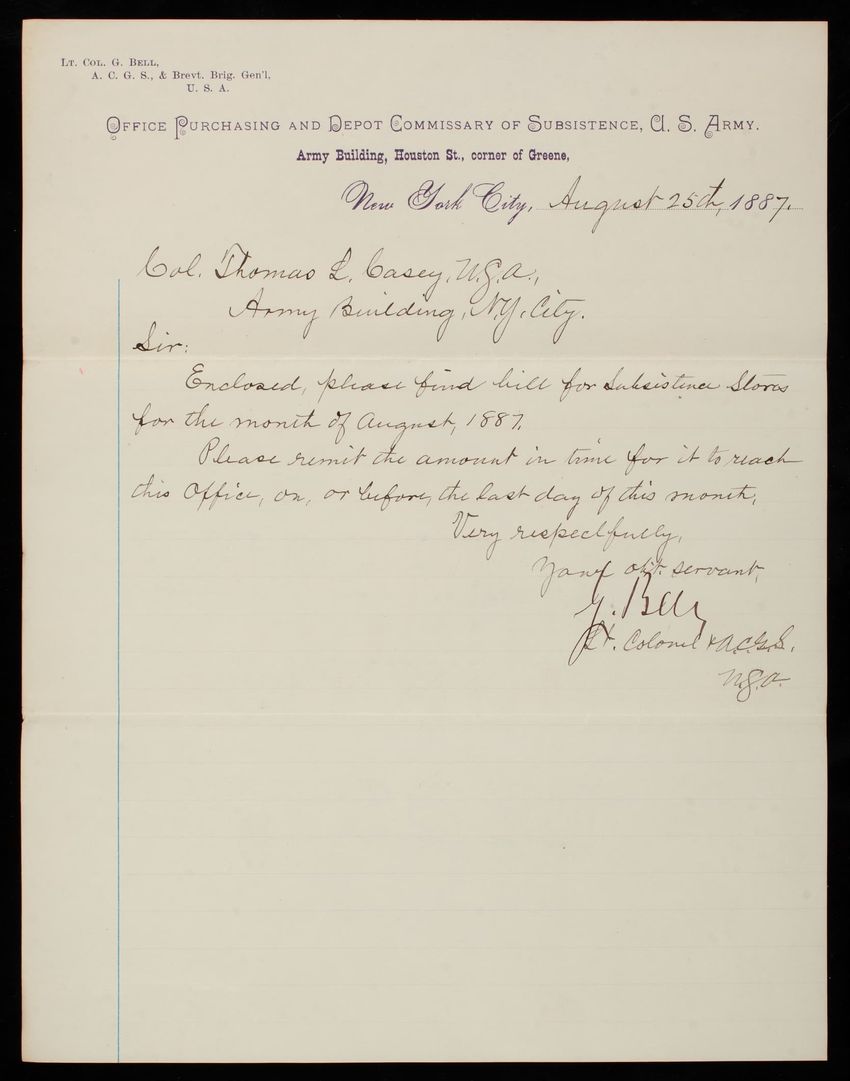 Lt. Col. G. Bell,
A. C. G. S., & Brevt. Brig. Gen'l,
U. S. A.
Office Purchasing and Depot Commissary of Subsistence, U. S. Army.
Army Building, Houston St., corner of Greene,
New York City, August 25th, 1887.
Col. Thomas L. Casey, U.S.A.,
Army Building, N.Y. City.
Sir:
Enclosed, please find bill for Subsistence Stores
for the month of August, 1887.
Please remit the amount in time for it to reach
this Office, on, or before, the last day of this month.
Very respectfully,
Your obt. servant,
G. Bell
Lt. Colonel & A.C.G.S.
U.S.A.